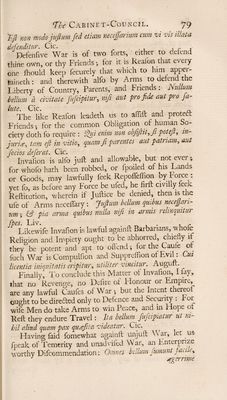 The CABINET-COUNCIL. 79
Est non modo justum sed etiam necessarium cum vi vis illata
defenditur. Cic.
Defensive War is of two forts, either to defend
thine own, or thy Friends; for it is Reason that every
one should keep securely that which to him apper-
taineth: and therewith also by Arms to defend the
Liberty of Country, Parents, and Friends: Nullum
bellum à civitate suscipitur, nisi aut pro fide aut pro sa-
lute. Cic.
The like Reason leadeth us to assist and protect
Friends; for the common Obligation of human So-
ciety doth so require: Qui enim non obsistit, si potest, in-
juriæ, tam est in vitio, quam si parentes aut patriam, aut
socios deserat. Cic.
Invasion is also just and allowable, but not ever;
for whoso hath been robbed, or spoiled of his Lands
or Goods, may lawfully seek Repossession by Force:
yet so, as before any Force be used, he first civilly seek
Restitution, wherein if Justice be denied, then is the
use of Arms necessary: Justum bellum quibus necessari-
um; & pia arma quibus nulla nisi in armis relinquitur
spes. Liv.
Likewise Invasion is lawful against Barbarians, whose
Religion and Impiety ought to be abhorred, chiefly if
they be potent and apt to offend; for the Cause of
such War is Compulsion and Suppression of Evil: Cui
licentia iniquitatis eripitur, utiliter vincitur. August.
Finally, To conclude this Matter of Invasion, I say,
that no Revenge, no Desire of Honour or Empire,
are any lawful Causes of War; but the Intent thereof
ought to be directed only to Defence and Security: For
wise Men do take Arms to win Peace, and in Hope of
Rest they endure Travel: Ita bellum suscipiatur ut ni-
hil aliud quam pax quæsita videatur. Cic.
Having said somewhat against unjust War, let us
speak of Temerity and unadvised War, an Enterprize
worthy Discommendation: Omnes bellum sumunt facile,
ægerrime